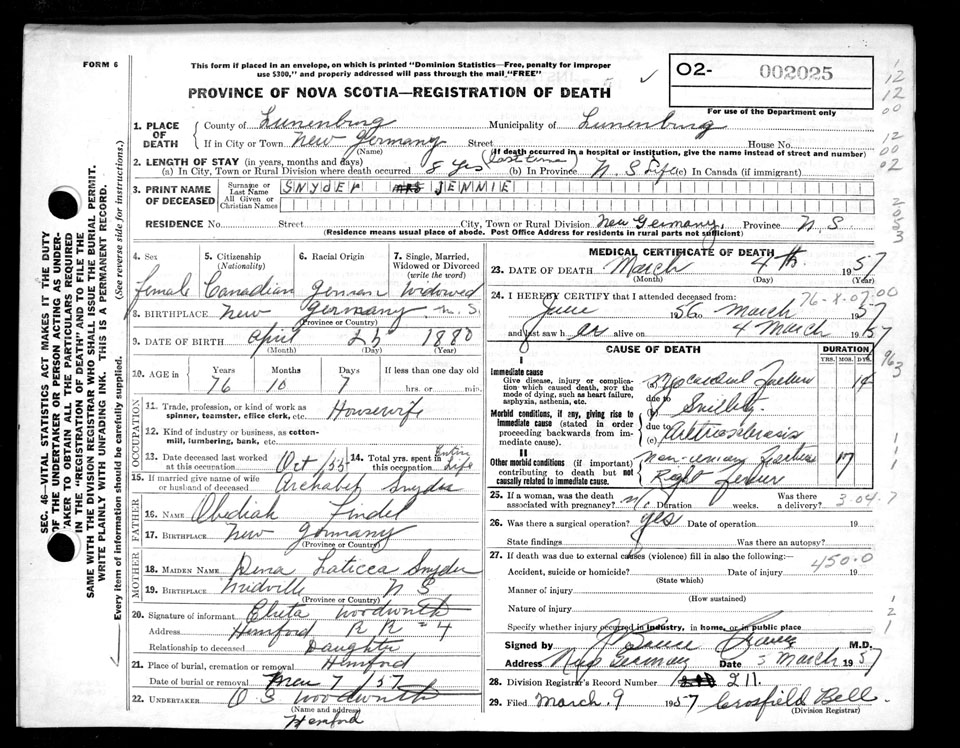 FORM 6
This form if placed in an envelope, on which is printed "Dominion Statistics—Free, penalty for improper
use $300," and properly addressed will pass through the mail "FREE"
O2- 002025
For use of the Department only
PROVINCE OF NOVA SCOTIA—REGISTRATION OF DEATH
1. PLACE OF DEATH County of Lunenburg Municipality of Lunenburg
If in City or Town New Germany Street House No.
(Name) (If death occurred in a hospital or institution, give the name instead of street and number)
2. LENGTH OF STAY (in years, months and days)
(a) In City, Town or Rural Division where death occurred 8 yrs (last time) (b) In Province N.S Life (c) In Canada (if immigrant)
3. PRINT NAME OF DECEASED Surname or Last Name SNYDER MRS JENNIE
All Given or Christian Names
RESIDENCE No. Street City, Town or Rural Division New Germany, Province N.S
(Residence means usual place of abode. Post Office Address for residents in rural parts not sufficient)
4. Sex female
5. Citizenship (Nationality) Canadian
6. Racial Origin German
7. Single, Married, Widowed or Divorced (write the word) Widowed
8. BIRTHPLACE New Germany N.S.
(Province or Country)
9. DATE OF BIRTH April 25 1880
(Month) (Day) (Year)
10. AGE in Years 76 Months 10 Days 7 If less than one day old
hrs. or min.
OCCUPATION
11. Trade, profession, or kind of work as spinner, teamster, office clerk, etc. Housewife
12. Kind of industry or business, as cotton-mill, lumbering, bank, etc.
13. Date deceased last worked at this occupation Oct /55 14. Total yrs. spent in this occupation Entire Life
15. If married give name of wife or husband of deceased Snyder
FATHER
16. NAME Obediah
17. BIRTHPLACE New Germany
(Province or Country)
MOTHER
18. MAIDEN NAME Snyder
19. BIRTHPLACE Midville N S
(Province or Country)
20. Signature of informant Woodworth
Address Hemford R R #4
Relationship to deceased Daughter
21. Place of burial, cremation or removal Hemford
Date of burial or removal Mar 7/57
22. UNDERTAKER O S Woodworth
(Name and address)
Hemford
MEDICAL CERTIFICATE OF DEATH
23. DATE OF DEATH March 4th 1957
(Month) (Day) (Year)
24. I HEREBY CERTIFY that I attended deceased from:
June 1956 to March 1957
and last saw her alive on 4 March 1957
CAUSE OF DEATH DURATION
YRS. MOS. DYS.
I
Immediate cause
Give disease, injury or complication which caused death, NOT the mode of dying, such as heart failure, asphyxia, asthenia, etc.
(a) Myocardial Failure 14
due to
Morbid conditions, if any, giving rise to immediate cause (stated in order proceeding backwards from immediate cause).
(b) Senility
due to
(c) Arteriosclerosis
II
Other morbid conditions (if important) contributing to death but not causally related to immediate cause.
Non-union fracture
Right femur
25. If a woman, was the death associated with pregnancy? No Duration weeks. Was there a delivery?
3-04-7
26. Was there a surgical operation? yes Date of operation 19
State findings Was there an autopsy?
27. If death was due to external causes (violence) fill in also the following:—
450-0
Accident, suicide or homicide? Date of injury 19
(State which)
Manner of injury
(How sustained)
Nature of injury
Specify whether injury occurred in industry, in home, or in public place
Signed by M.D.
Address New Germany Date 5 March 1957
28. Division Registrar's Record Number 211.
29. Filed March 9 1957 Crossfield Bell
(Division Registrar)
SEC. 46—VITAL STATISTICS ACT MAKES IT THE DUTY
OF THE UNDERTAKER OR PERSON ACTING AS UNDER-
TAKER TO OBTAIN ALL THE PARTICULARS REQUIRED
IN THE "REGISTRATION OF DEATH" AND TO FILE THE
SAME WITH THE DIVISION REGISTRAR WHO SHALL ISSUE THE BURIAL PERMIT.
WRITE PLAINLY WITH UNFADING INK. THIS IS A PERMANENT RECORD.
Every item of information should be carefully supplied. (See reverse side for instructions.)